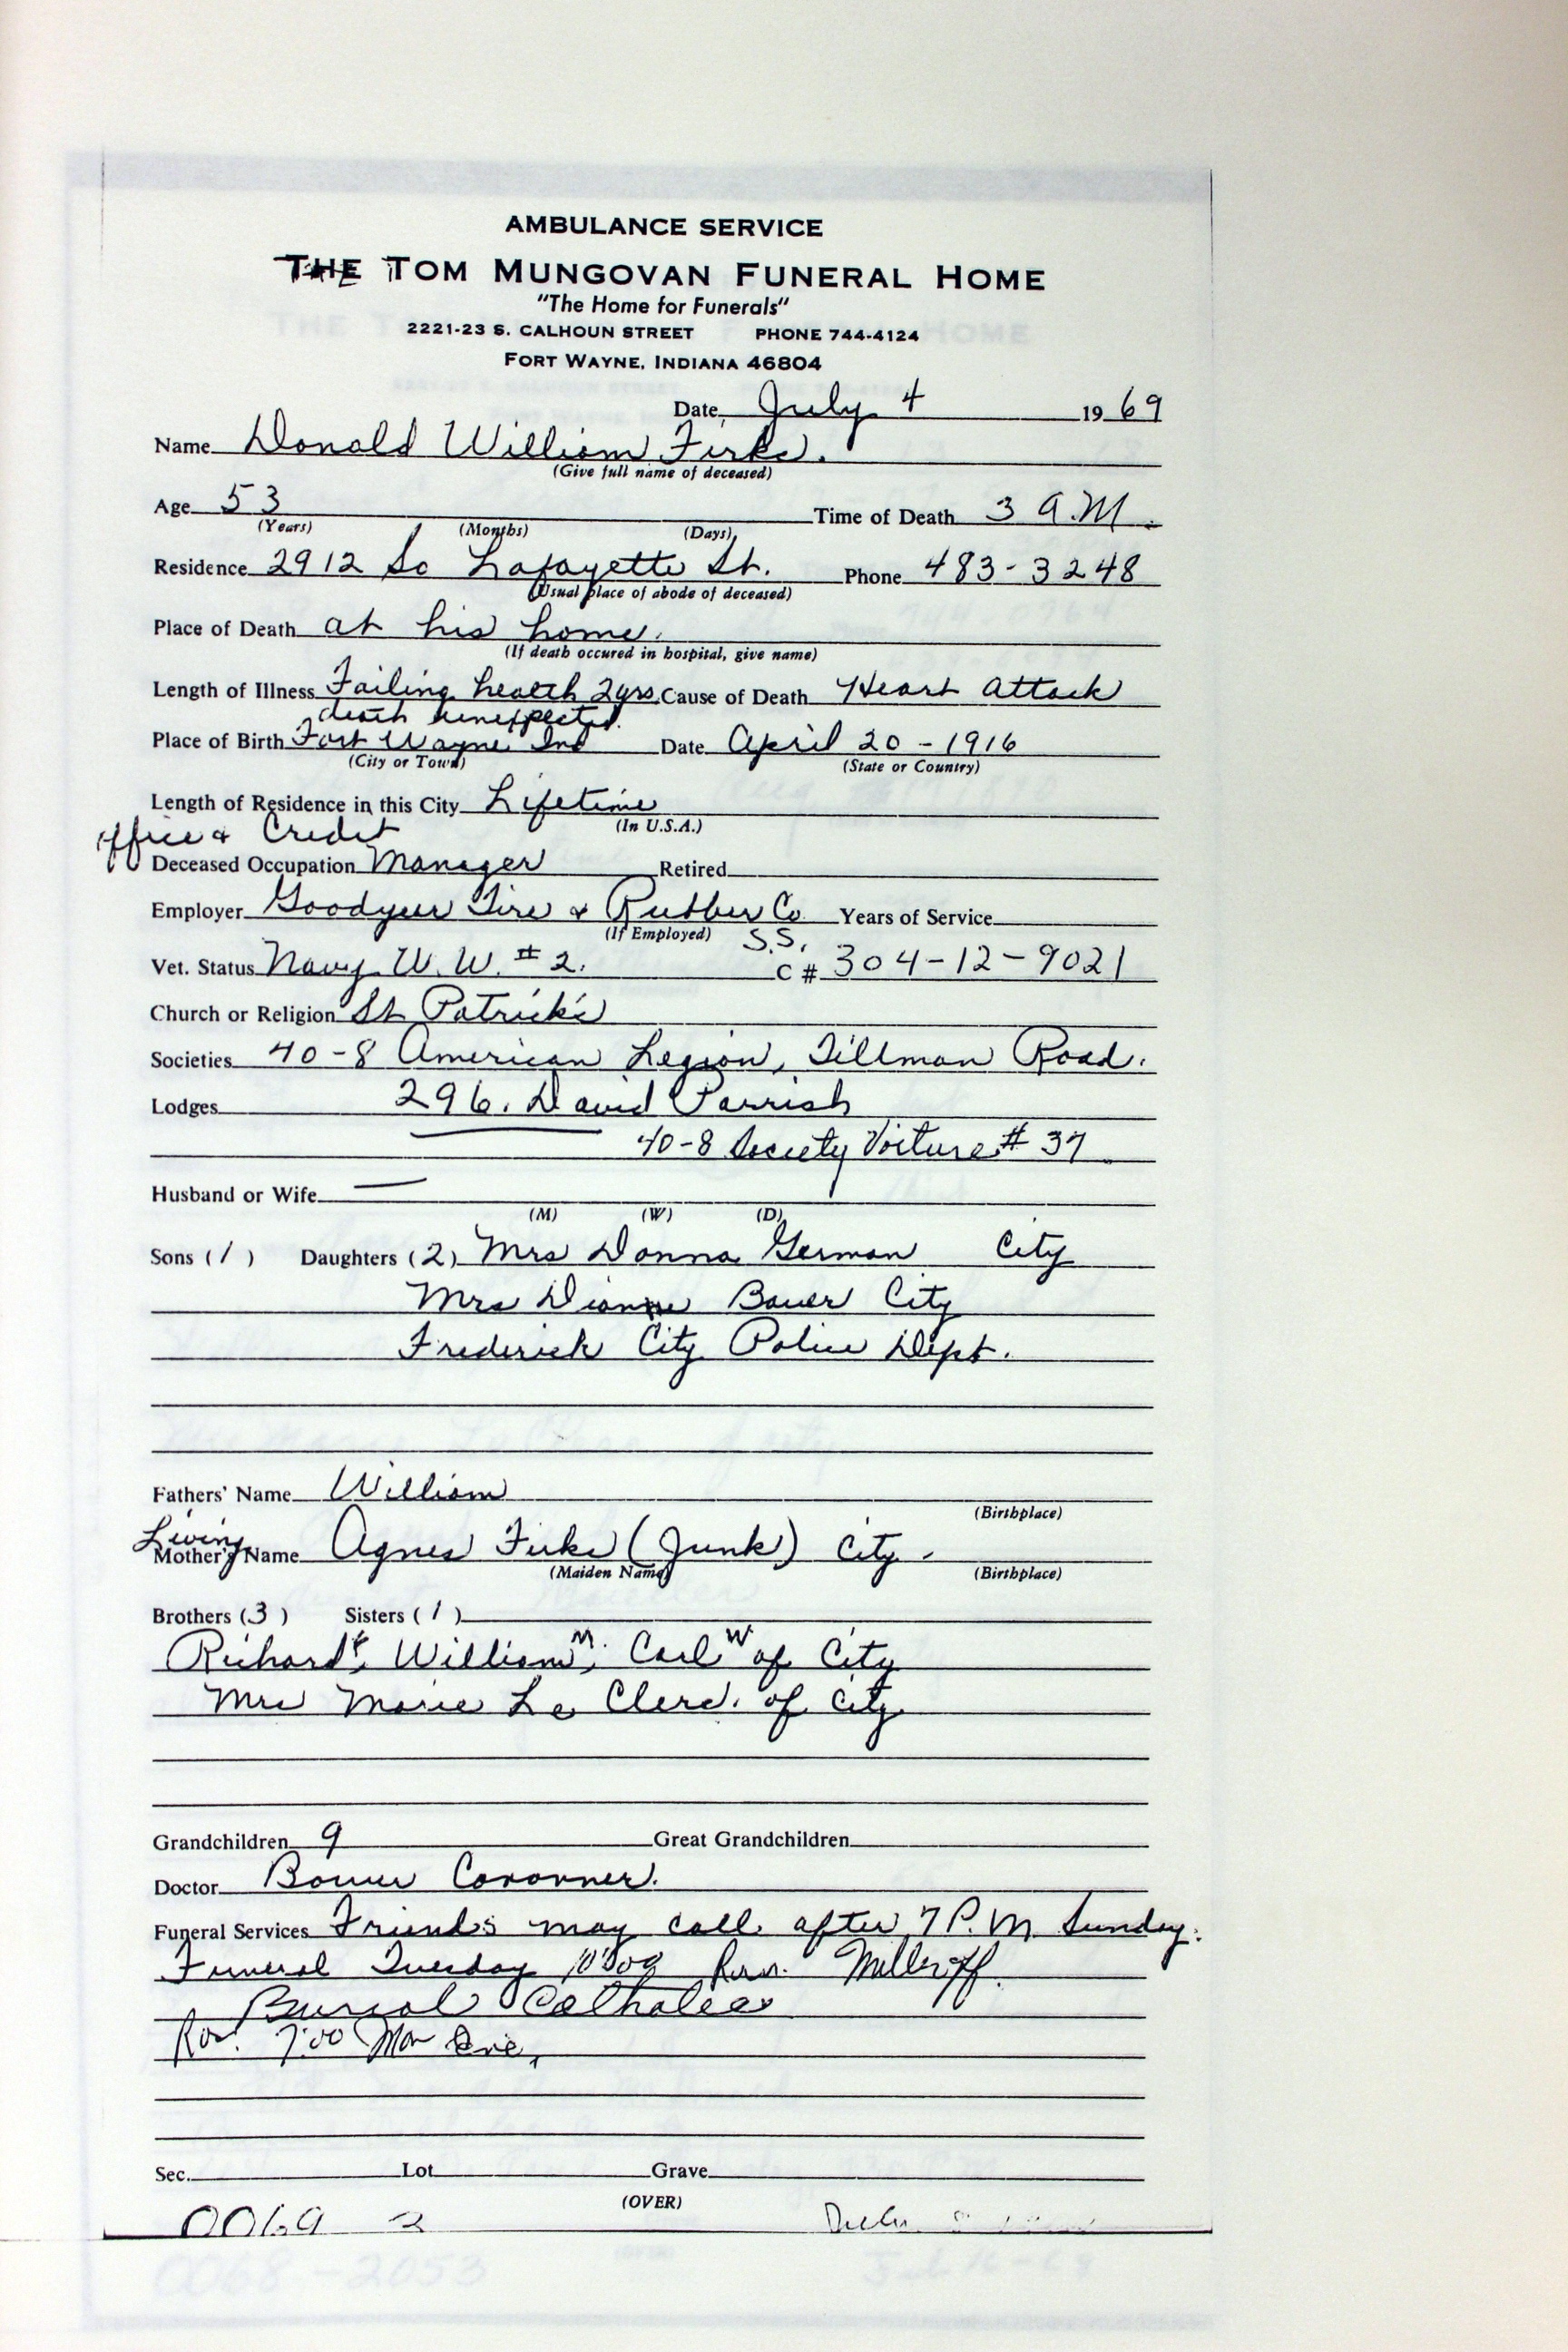 AMBULANCE SERVICE
THE TOM MUNGOVAN FUNERAL HOME
"The Home for Funerals"
2221-23 S. CALHOUN STREET PHONE 744-4124
FORT WAYNE, INDIANA 46804
Date July 4 19 69
Name Donald William Firks.
(Give full name of deceased)
Age 53 Time of Death 3 A.M.
(Years) (Months) (Days)
Residence 2912 So Lafayette St. Phone 483-3248
(Usual place of abode of deceased)
Place of Death at his home.
(If death occured in hospital, give name)
Length of Illness Failing health 2yrs Cause of Death Heart attack
death unexpected.
Place of Birth Fort Wayne Ind Date April 20-1916
(City or Town) (State or Country)
Length of Residence in this City Lifetime
(In U.S.A.)
office & Credit
Deceased Occupation Manager Retired
Employer Goodyear Tire & Rubber Co Years of Service
(If Employed) S.S.
Vet. Status Navy W.W. #2. C# 304-12-9021
Church or Religion St Patrick's
Societies 40-8 American Legion, Tillman Road.
Lodges 296. David Parrish
40-8 Society Voiture # 37
Husband or Wife —
(M) (W) (D)
Sons (1) Daughters (2) Mrs Donna German City
Mrs Dianne Bauer City
Frederick City Police Dept.
Fathers' Name William
(Birthplace)
Living
Mother's Name Agnes Firks (Junk) City.
(Maiden Name) (Birthplace)
Brothers (3) Sisters (1)
Richard, William M. Carl W of City
Mrs Marie Le Clerc. of City
Grandchildren 9 Great Grandchildren
Doctor Coronner.
Funeral Services Friends may call after 7 P.M Sunday.
Funeral Tuesday 10:00 Rev.
Burial Catholic
Ros. 7:00 Mon Eve,
Sec. Lot Grave
(OVER)
0069 2
0068-2053